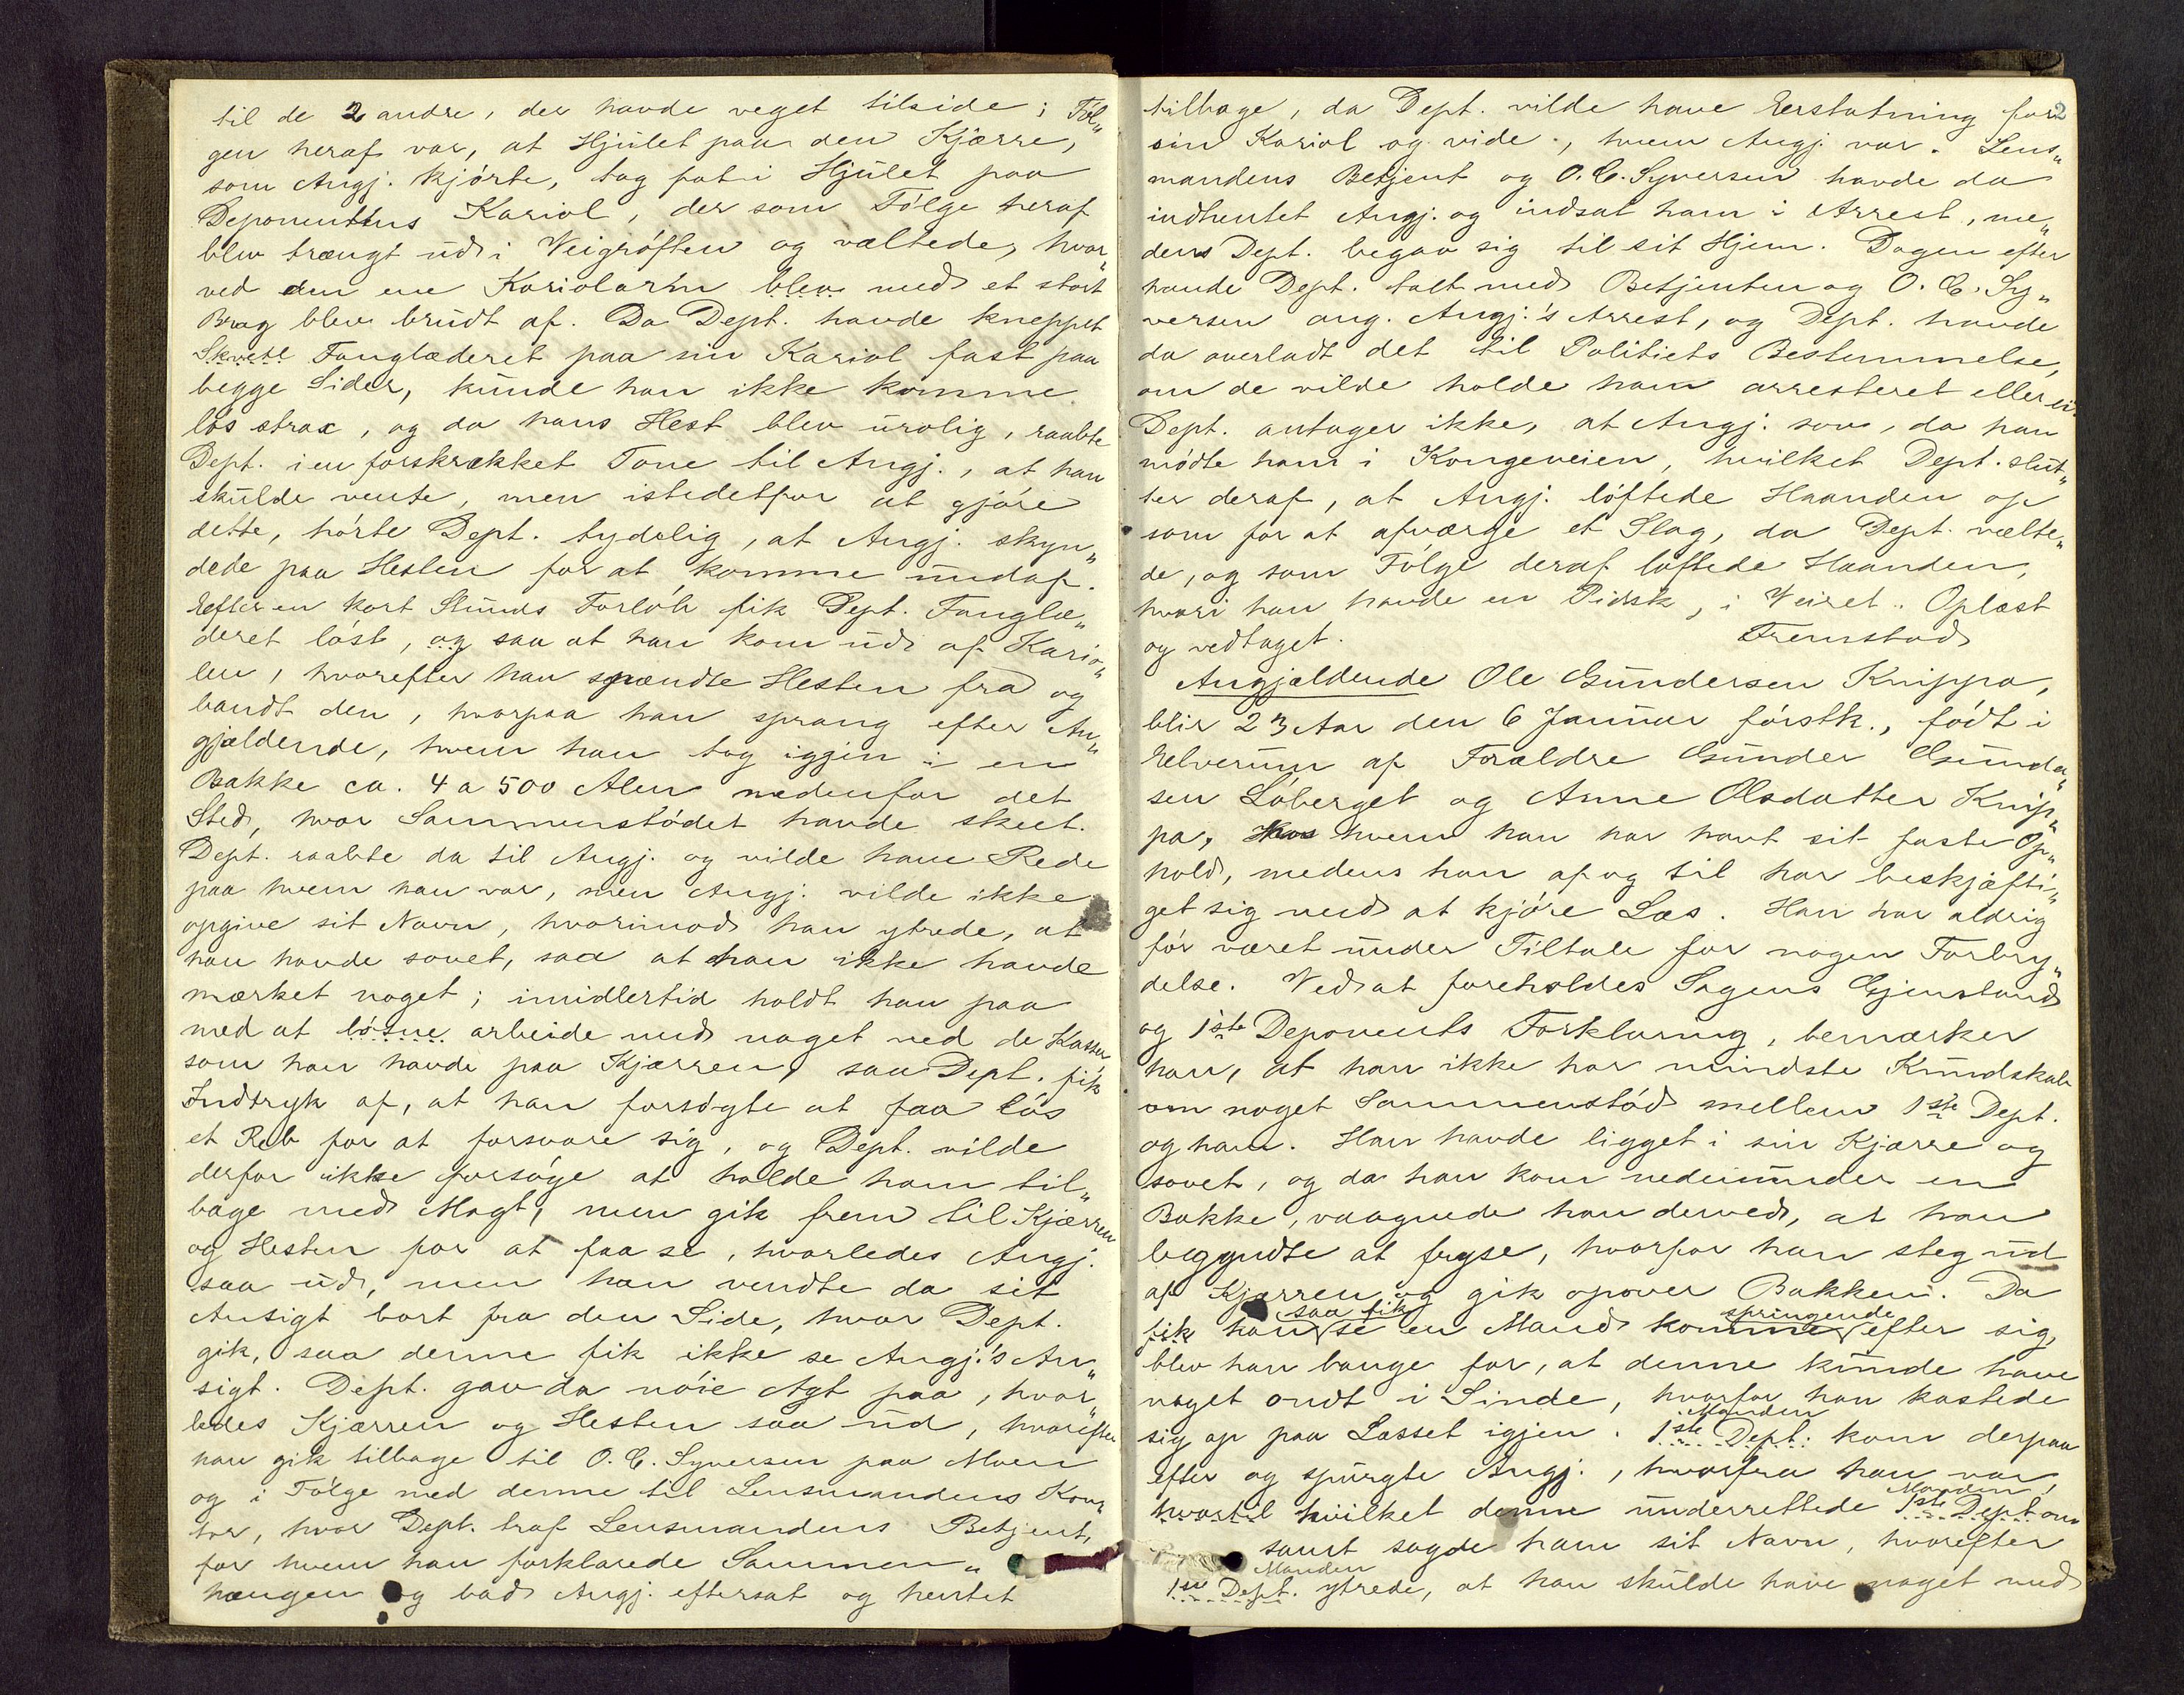 til de 2 andre, der havde veget tilside; Føl„
gen heraf var, at Hjulet paa den Kjærre,
som Angj. kjørte, tog fat i Hjulet paa
Deponentens Kariol, der som Følge heraf
blev trængt ud i Veigrøften og væltede, hvor„
ved den ene Kariolarm blev med et stort
Brag blev brudt af. Da Dept. havde kneppet
Skvæt Fanglæderet paa sin Kariol fast paa
begge Sider, kunde han ikke komme
løs strax, og da hans Hest blev urolig, raabte
Dept. i en forskrækket Tone til Angj., at han
skulde vente, men istedetfor at gjøre
dette, hørte Dept. tydelig, at Angj. skyn„
dede paa Hesten for at komme undaf.
Efter en kort Stunds Forløb fik Dept. Fanglæ„
deret løst, og saa at han kom ud af Kario„
len, hvorefter han spændte Hesten fra og
bandt den, hvorpaa han sprang efter An„
gjældende, hvem han tog iggjen i en
Bakke ca. 4 a 500 Alen nedenfor det
Sted, hvor Sammenstødet havde skeet.
Dept. raabte da til Angj. og vilde have Rede
paa hvem han var, men Angj. vilde ikke
opgive sit Navn, hvorimod han ytrede, at
han havde sovet, saa at han ikke havde
mærket noget; imidlertid holdt han paa
med at løsne arbeide med noget ved de Kasser
som han havde paa Kjærren, saa Dept. fik
Indtryk af, at han forsøgte at faa løs
et Reb for at forsvare sig, og Dept. vilde
derfor ikke forsøge at holde ham til„
bage med Magt, men gik frem til Kjærren
og Hesten for at faa se, hvorledes Angj.
saa ud, men han vendte da sit
Ansigt bort fra den Side, hvor Dept.
gik, saa denne fik ikke se Angj.'s An„
sigt. Dept. gav da nøie Agt paa, hvor„
ledes Kjærren og Hesten saa ud, hvorefter
han gik tilbage til O. C. Syversen paa Moen
og i Følge med denne til Lensmandens Kon„
tor, hvor Dept. traf Lensmandens Betjent,
for hvem han forklarede Sammen„
hængen og bad Angj. eftersat og hentet
2
tilbage, da Dept. vilde have Erstatning for
sin Kariol og vide, hvem Angj. var. Lens„
mandens Betjent og O. C. Syversen havde da
indhentet Angj. og indsat ham i Arrest, me„
dens Dept. begav sig til sit Hjem. Dagen efter
havde Dept. talt med Betjenten og O. C. Sy„
versen ang. Angj.'s Arrest, og Dept. havde
da overladt det til Politiets Bestemmelse,
om de vilde holde ham arresteret eller ei.
Dept. antager ikke, at Angj. sov, da han
mødte ham i Kongeveien, hvilket Dept. slut„
ter deraf, at Angj. løftede Haanden op
som for at afværge et Slag, da Dept. vælte„
de, og som Følge deraf løftede Haanden,
hvori han havde en Pidsk, i Veiret. Oplæst
og vedtaget. Fremstod
Angjældende Ole Gundersen Knippa,
blir 23 Aar den 6 Januar førstk., født i
Elverum af Forældre Gunder Gunder„
sen Løberget og Anne Olsdatter Knip„
pa, Hos hvem han har havt sit faste Op„
hold, medens han af og til har beskjæfti„
get sig med at kjøre Læs. Han har aldrig
før været under Tiltale for nogen Forbry„
delse. Ved at foreholdes Sagens Gjenstand
og 1ste Deponents Forklaring, bemærker
han, at han ikke har mindste Kundskab
om noget Sammenstød mellem 1ste Dept.
og ham. Han havde ligget i sin Kjærre og
sovet, og da han kom nedenunder en
Bakke, vaagnede han derved, at han
begyndte at fryse, hvorfor han steg ud
af Kjærren og gik opover Bakken. Da
saa fik springende
fik han se en Mand komme efter sig,
blev han bange for, at denne kunde have
noget ondt i Sinde, hvorfor han kastede
Manden
sig op paa Læsset igjen. 1ste Dept. kom derpaa
efter og spurgte Angj., hvorfra han var,
Manden
hvortil hvilket denne underrettede 1ste Dept om
samt sagde ham sit Navn, hvorefter
Manden
1ste Dept. ytrede, at han skulde have noget med